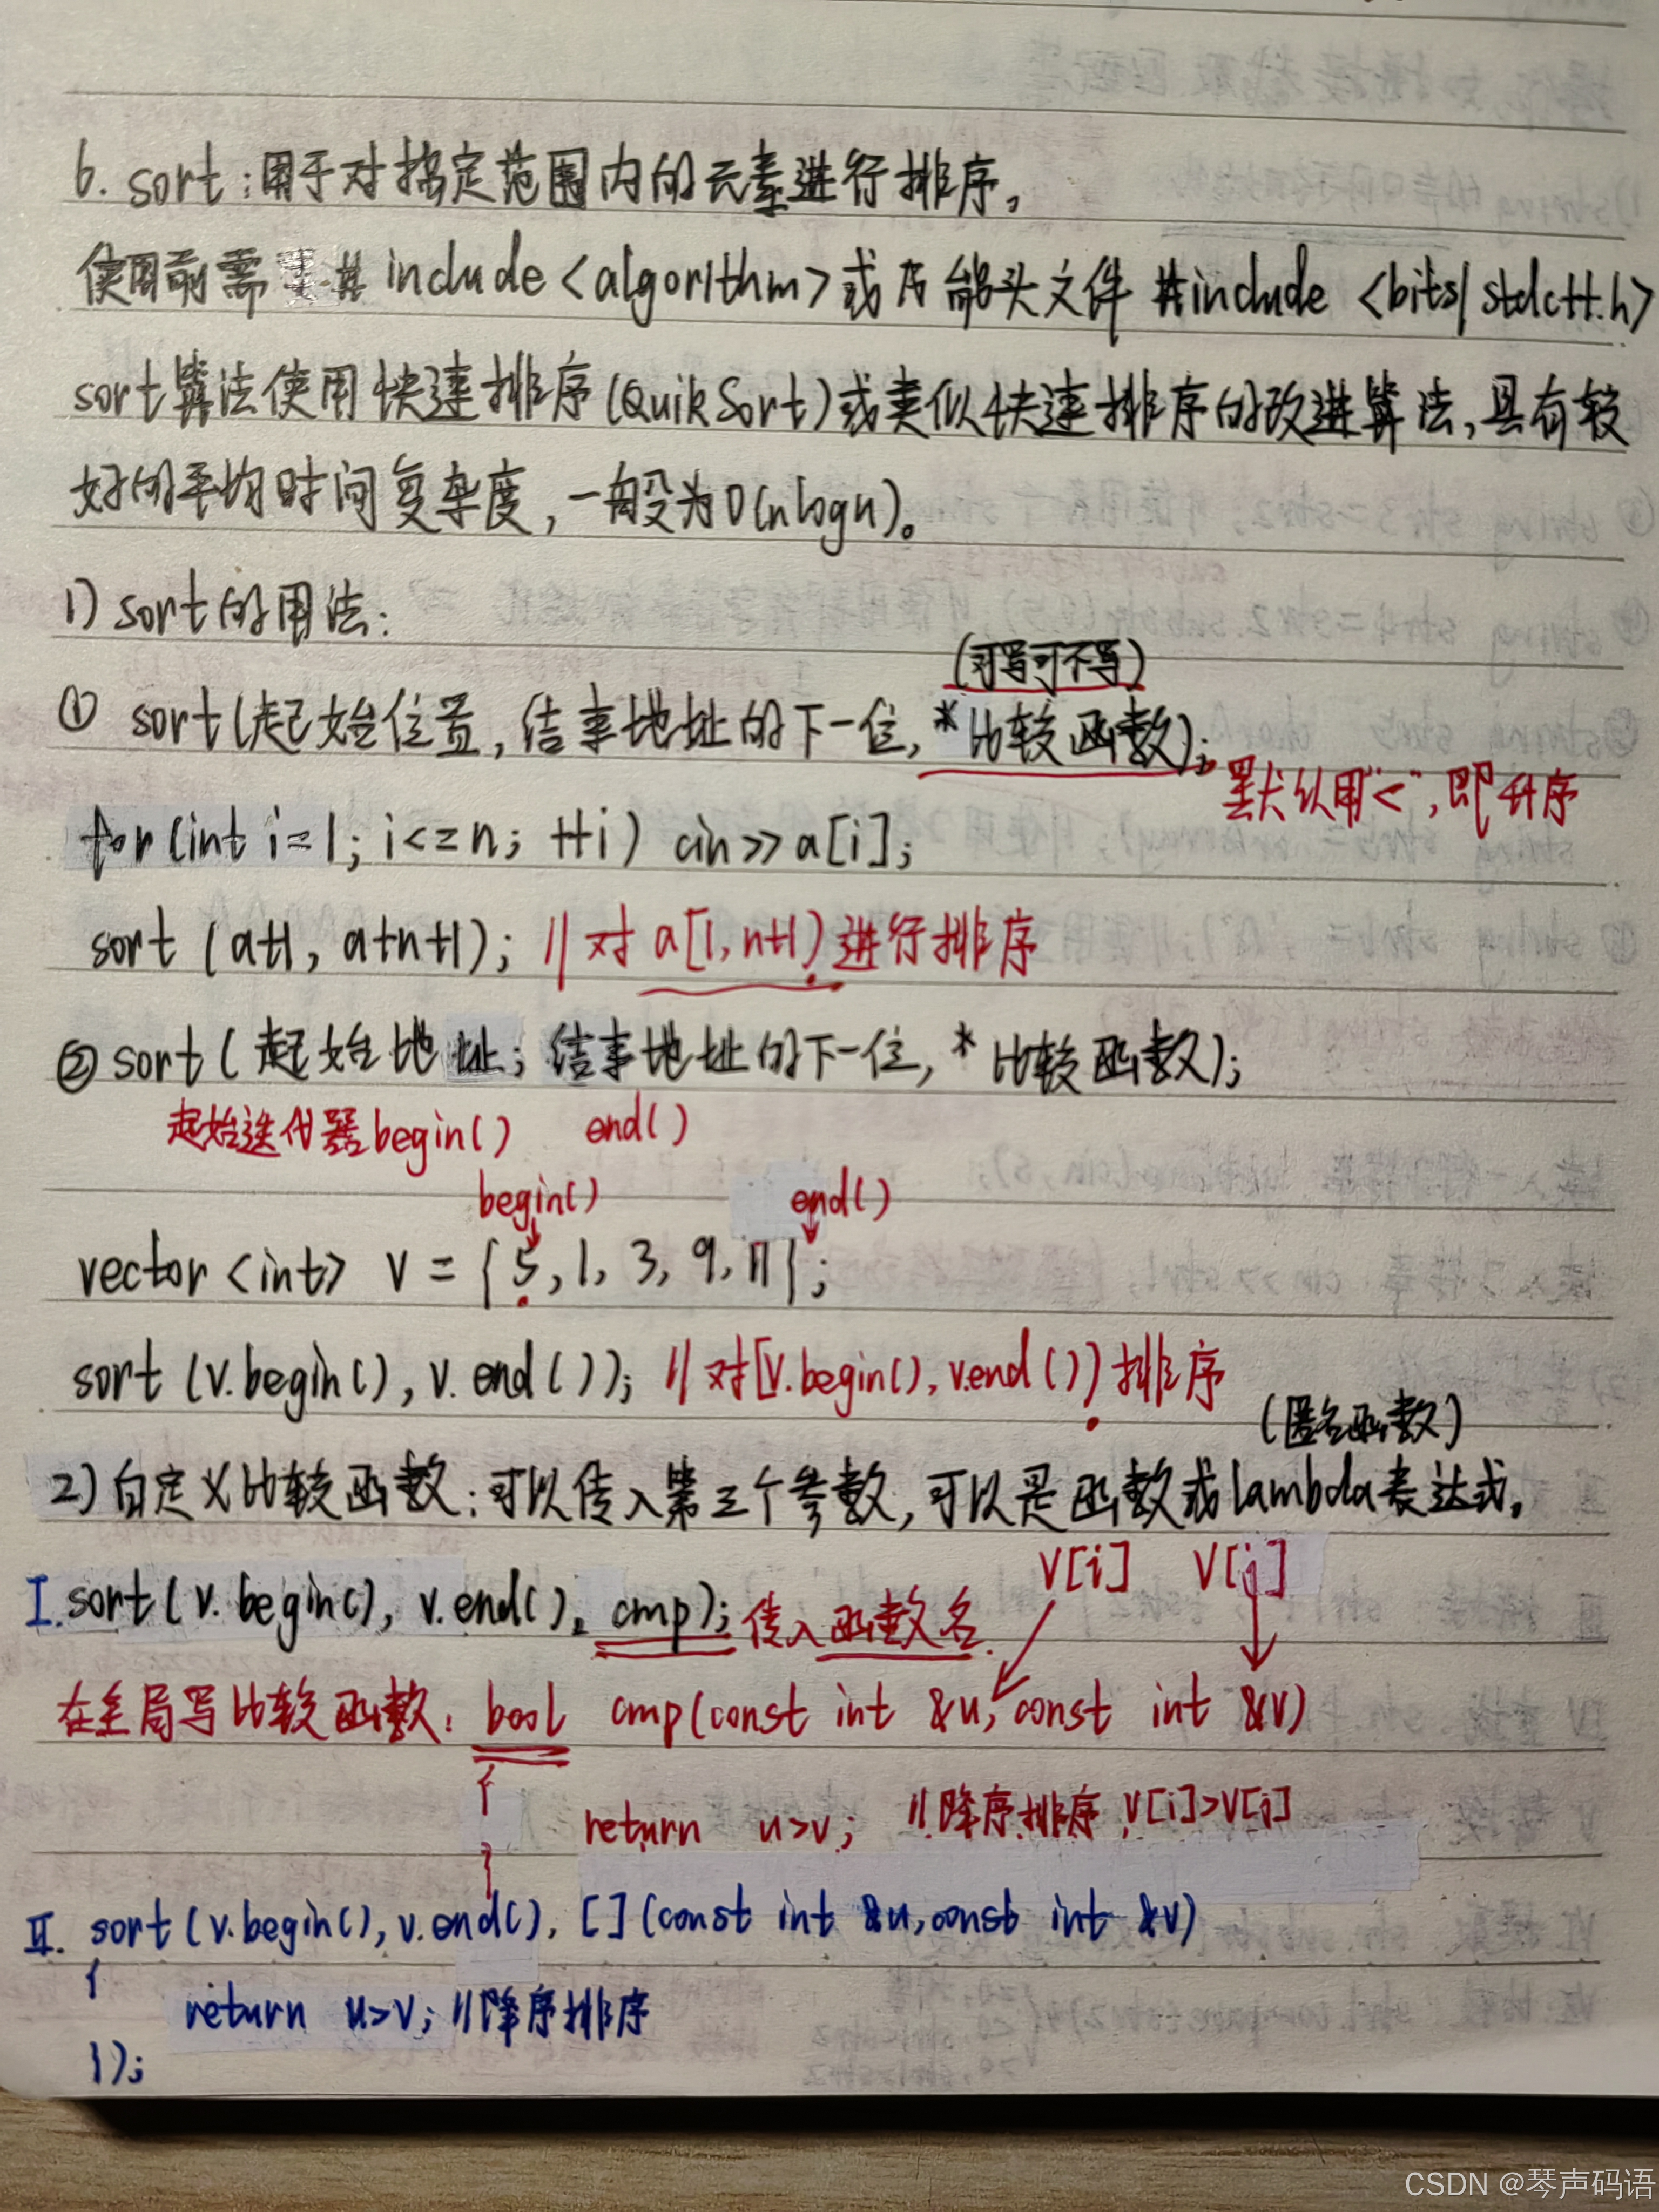 6. sort:用于对指定范围内的元素进行排序。
使用前需要#include <algorithm>或万能头文件 #include <bits/stdc++.h>
sort算法使用快速排序(QuikSort)或类似快速排序的改进算法,具有较
好的平均时间复杂度,一般为O(nlogn)。
1) sort的用法:
(可写可不写)
① sort(起始位置,结束地址的下一位,*比较函数);
默认用"<",即升序
for(int i=1; i<=n; ++i) cin>>a[i];
sort (a+1, a+n+1); //对a[1,n+1)进行排序
② sort(起始地址,结束地址的下一位,*比较函数);
起始迭代器begin() end()
begin() end()
vector<int> v = {5,1,3,9,11};
sort (v.begin(), v.end()); //对[v.begin(),v.end())排序
(匿名函数)
2)自定义比较函数:可以传入第三个参数,可以是函数或lambda表达式。
V[i] V[j]
I. sort(v.begin(), v.end(), cmp); 传入函数名.
在全局写比较函数: bool cmp(const int &u, const int &v)
{
return u>v; //降序排序, V[i]>V[j]
}
II. sort(v.begin(),v.end(), [](const int &u,const int &v)
{
return u>v; //降序排序
});
CSDN @琴声码语